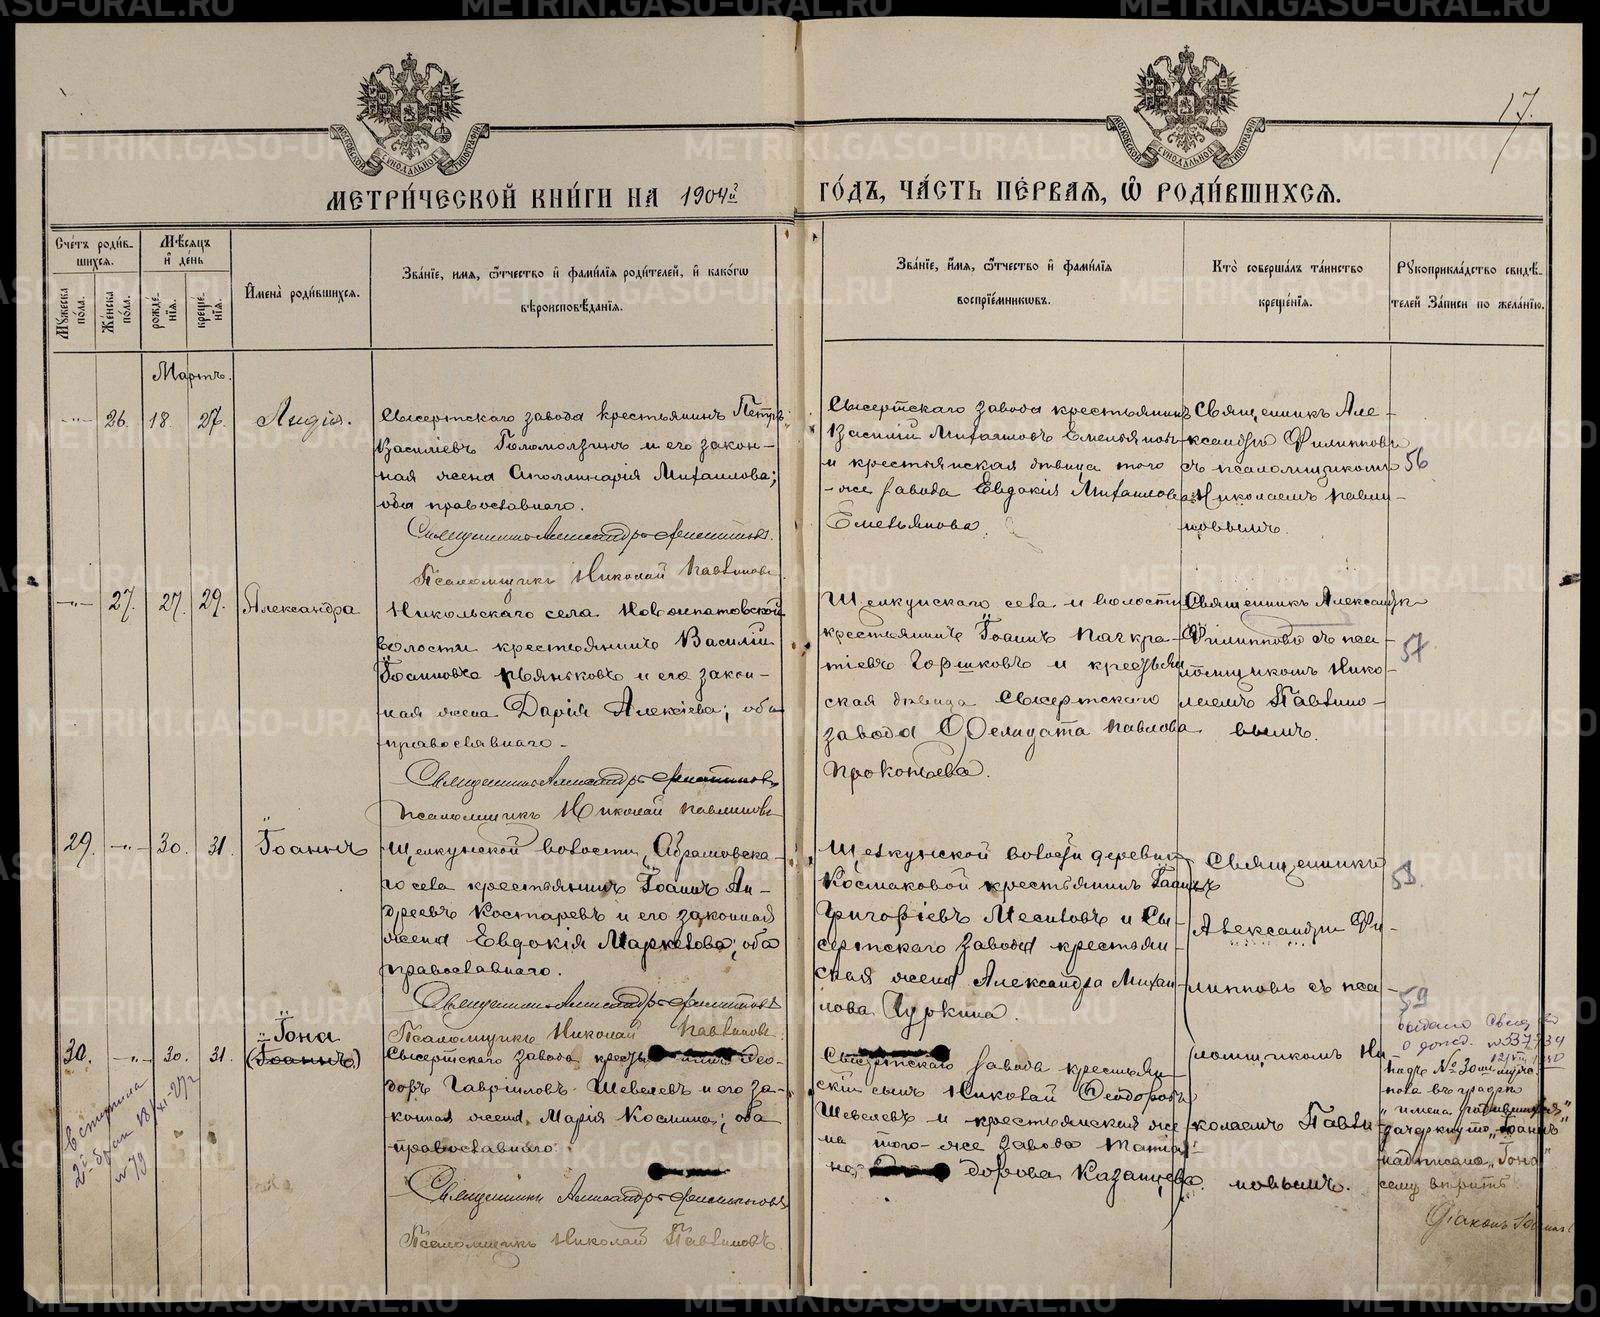 17.
МЕТРИ́ЧЕСКОЙ КНИ́ГИ НА 1904й
ГО́ДЪ, ЧА́СТЬ ПЕ́РВАЯ, Ѿ РОДИ́ВШИХСЯ.
Сче́тъ роди́в-
шихся.
Мѣ́сяцъ
и҆ де́нь
Мꙋ́жеска по́ла.
Же́нска по́ла.
рожде́нїя.
креще́нїя.
И҆мена̀ роди́вшихся.
Зва́нїе, имя, ѻ҆́тчество и҆ фами́лїя роди́телей, и҆ како́гѡ
вѣроисповѣ́данїя.
Зва́нїе, и҆́мя, ѻ҆́тчество и҆ фами́лїя
воспрїе́мникѡвъ.
Кто̀ соверша́лъ та́инство
креще́нїя.
Рꙋкоприкла́дство свидѣ́-
телей За́писи по жела́нїю.
Мартъ.
26. 18. 27. Лидія.
Сысертскаго завода крестьянинъ Петръ
Василіевъ Голомолзинъ и его закон-
ная жена Аполлинарія Михаилова;
оба православнаго.
Священникъ Александръ Филипповъ.
Псаломщикъ Николай Павлиновъ.
Сысертскаго завода крестьянинъ
Василій Михаиловъ Емельяновъ
и крестьянская дѣвица того
-же завода Евдокія Михаилова
Емельянова.
Священникъ Але-
ксандръ Филипповъ
съ псаломщикомъ
Николаемъ Павли-
новымъ.
56
27. 27. 29. Александра
Никольскаго села Новоипатовской
волости крестьянинъ Василій
Іоанновъ Пьянковъ и его закон-
ная жена Дарія Алексіева; оба
православнаго.
Священникъ Александръ Филипповъ
Псаломщикъ Николай Павлиновъ
Щелкунскаго села и волости
крестьянинъ Іоаннъ Панкра-
тіевъ Горшковъ и крестьян
ская дѣвица Сысертскаго
завода Фелицата Павлова
Прокопьева.
Священникъ Александръ
Филипповъ съ пса-
ломщикомъ Нико-
лаемъ Павлино-
вымъ.
57
29. 30. 31. Іоаннъ
Щелкунской волости, Абрамовска-
го села крестьянинъ Іоаннъ Ан-
дреевъ Костаревъ и его законная
жена Евдокія Маркелова; оба
православнаго.
Священникъ Александръ Филипповъ
Псаломщикъ Николай Павлиновъ.
Щелкунской волости деревни
Космаковой крестьянинъ Іоаннъ
Григоріевъ Меситовъ и Сы-
сертскаго завода крестьян-
ская жена Александра Михаи-
лова Чуркина.
Священникъ
Александръ Фи-
липповъ съ пса-
ломщикомъ Ни-
колаемъ Павли-
новымъ.
58.
30. 30. 31. Іона
(Іоаннъ)
Сысертскаго завода
Ѳео-
доръ Гавріиловъ Шевелевъ и его за-
конная жена Марія Космина; оба
православнаго.
Священникъ Александръ Филипповъ
Псаломщикъ Николай Павлиновъ.
Сысертскаго завода крестьян-
скій сынъ Николай Ѳеодоровъ
Шевелевъ и крестьянская же-
на того-же завода Татіа-
на дорова Казанцева.
59
выдано
№ 30
въ графѣ
„имена родившихся“
зачеркнуто „Іоаннъ“
надписано „Іона“
сему вѣрить
Діаконъ
№ 79